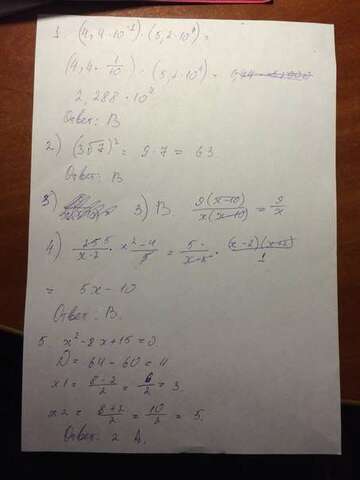 1. (4,4·10⁻¹)·(5,2·10⁴) =
(4,4·1/10)·(5,2·10⁴) =
2,288·10⁴
Ответ: В
2) (3√7)² = 9·7 = 63.
Ответ: В
3) 3) В. 9(x-10)/x(x-10) = 9/x
4) 25/x-2 · x²-4/5 = 5/x-2 · (x-2)(x+2)/1
= 5x-10
Ответ: В.
5. x²-8x+15=0
D = 64-60=4
x1 = 8-2/2 = 6/2 = 3.
x2 = 8+2/2 = 10/2 = 5.
Ответ: 2 А.